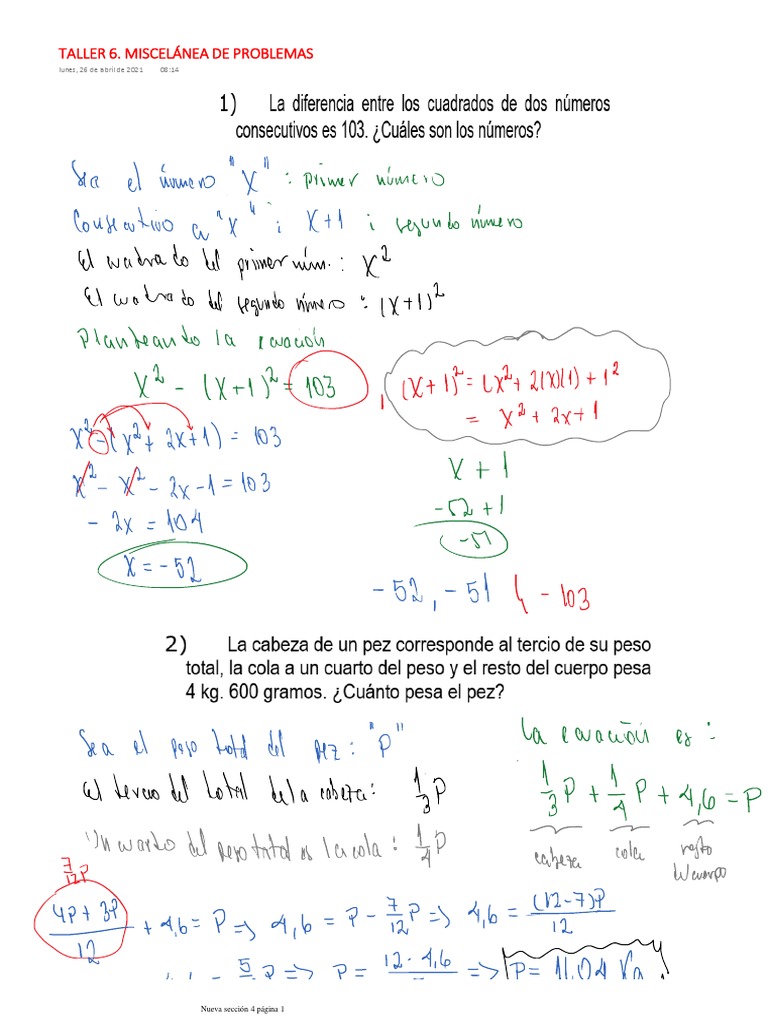 TALLER 6. MISCELÁNEA DE PROBLEMAS
lunes, 26 de abril de 2021 08:14
1) La diferencia entre los cuadrados de dos números
consecutivos es 103. ¿Cuáles son los números?
Sea el número "X" : primer número
Consecutivo a "x" : X+1 : segundo número
El cuadrado del primer núm. : X²
El cuadrado del segundo número : (X+1)²
Planteando la ecuación
X² - (X+1)² = 103
(X+1)² = (X² + 2(X)(1) + 1²
= X² + 2x + 1
X² - (X² + 2X + 1) = 103
X² - X² - 2x - 1 = 103
- 2x = 104
X = - 52
X + 1
- 52 + 1
- 51
- 52, - 51 - 103
2) La cabeza de un pez corresponde al tercio de su peso
total, la cola a un cuarto del peso y el resto del cuerpo pesa
4 kg. 600 gramos. ¿Cuánto pesa el pez?
Sea el peso total del pez : "P"
La ecuación es :
El tercio del total de la cabeza : 1/3 P
1/3 P + 1/4 P + 4,6 = P
Un cuarto del peso total es la cola : 1/4 P
cabeza cola resto
del cuerpo
7/12 P
(4P + 3P)/12 + 4,6 = P => 4,6 = P - 7/12 P => 4,6 = (12-7)P/12
5 P => P = 12 · 4,6 => P = 11,04 Kg
Nueva sección 4 página 1